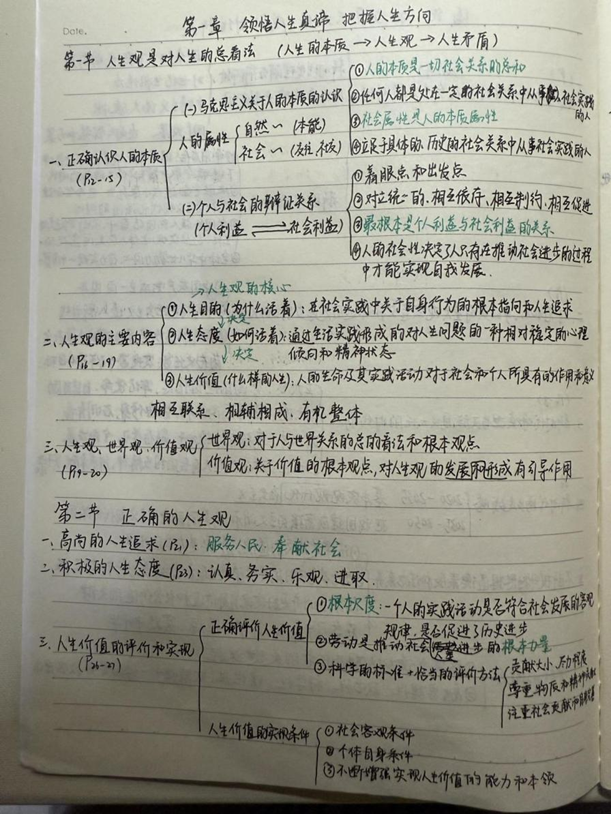 Date.
第一章 领悟人生真谛 把握人生方向
第一节 人生观是对人生的总看法 (人的本质→人生观→人生矛盾)
一、正确认识人的本质
(P12-15)
(一)马克思主义关于人的本质的认识
人的属性
自然~(本能)
社会~
①人的本质是一切社会关系的总和
②任何人都是处在一定的社会关系中从事社会实践的人
③社会属性是人的本质属性
④立足于具体的、历史的社会关系中从事社会实践的人
(二)个人与社会的辩证关系
(个人利益⇌社会利益)
①着眼点和出发点
②对立统一的、相互依存、相互制约、相互促进
③最根本是个人利益与社会利益的关系
④人的社会性决定了人只有在推动社会进步的过程
中才能实现自我发展.
二、人生观的主要内容
(P16-19)
→人生观的核心
①人生目的(为什么活着):在社会实践中关于自身行为的根本指向和人生追求
↓决定
②人生态度(如何活着):通过生活实践形成的对人生问题的一种相对稳定的心理
倾向和精神状态
↓决定
③人生价值(什么样的人生):人的生命及其实践活动对于社会和个人所具有的作用和意义
相互联系、相辅相成、有机整体
三、人生观、世界观、价值观
(P19-20)
世界观:对于人与世界关系的总的看法和根本观点
价值观:关于价值的根本观点,对人生观的发展形成有引导作用
第二节 正确的人生观
一、高尚的人生追求(P21):服务人民、奉献社会
二、积极的人生态度(P23):认真、务实、乐观、进取.
三、人生价值的评价和实现
(P24-27)
正确评价人生价值
①根本尺度:一个人的实践活动是否符合社会发展的客观
规律,是否促进了历史进步
②劳动是推动社会进步的根本力量
③科学的标准+恰当的评价方法
贡献大小、尽力程度
尊重物质和精神
注重社会贡献和
人生价值的实现条件
①社会客观条件
②个体自身条件
③不断增强实现人生价值的能力和本领